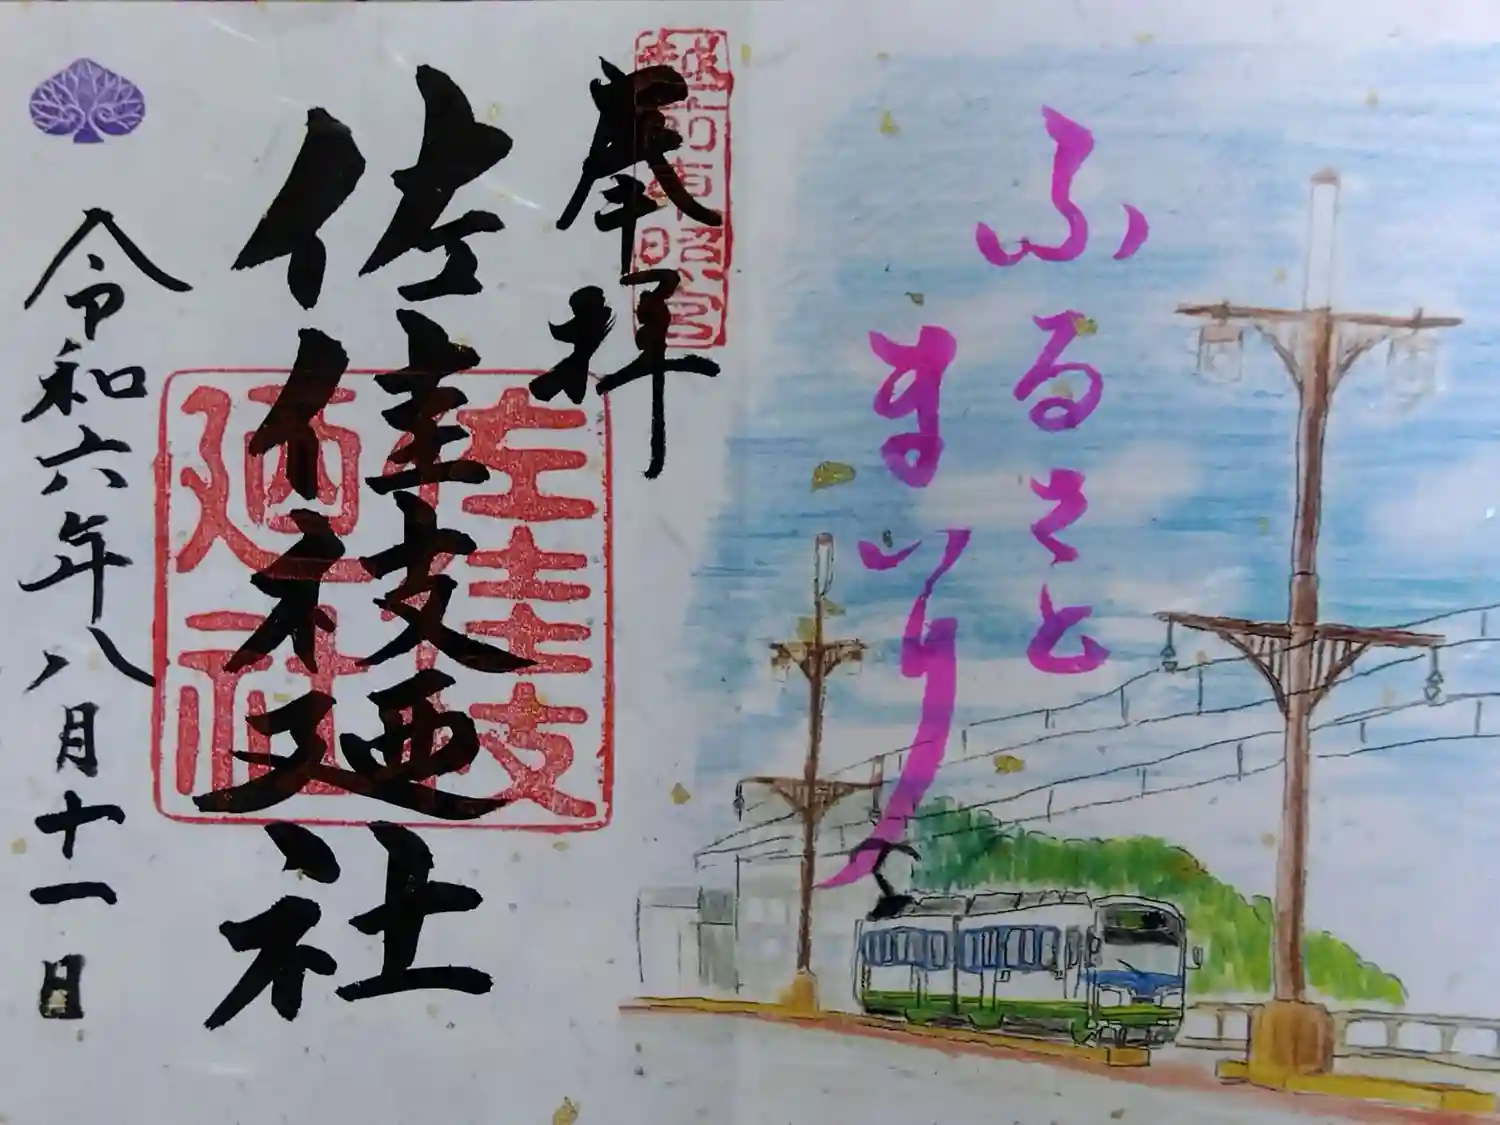 ふるさと
まいり
越前東照宮
奉拝
佐佳枝廼社
佐佳枝
廼社
令和六年八月十一日